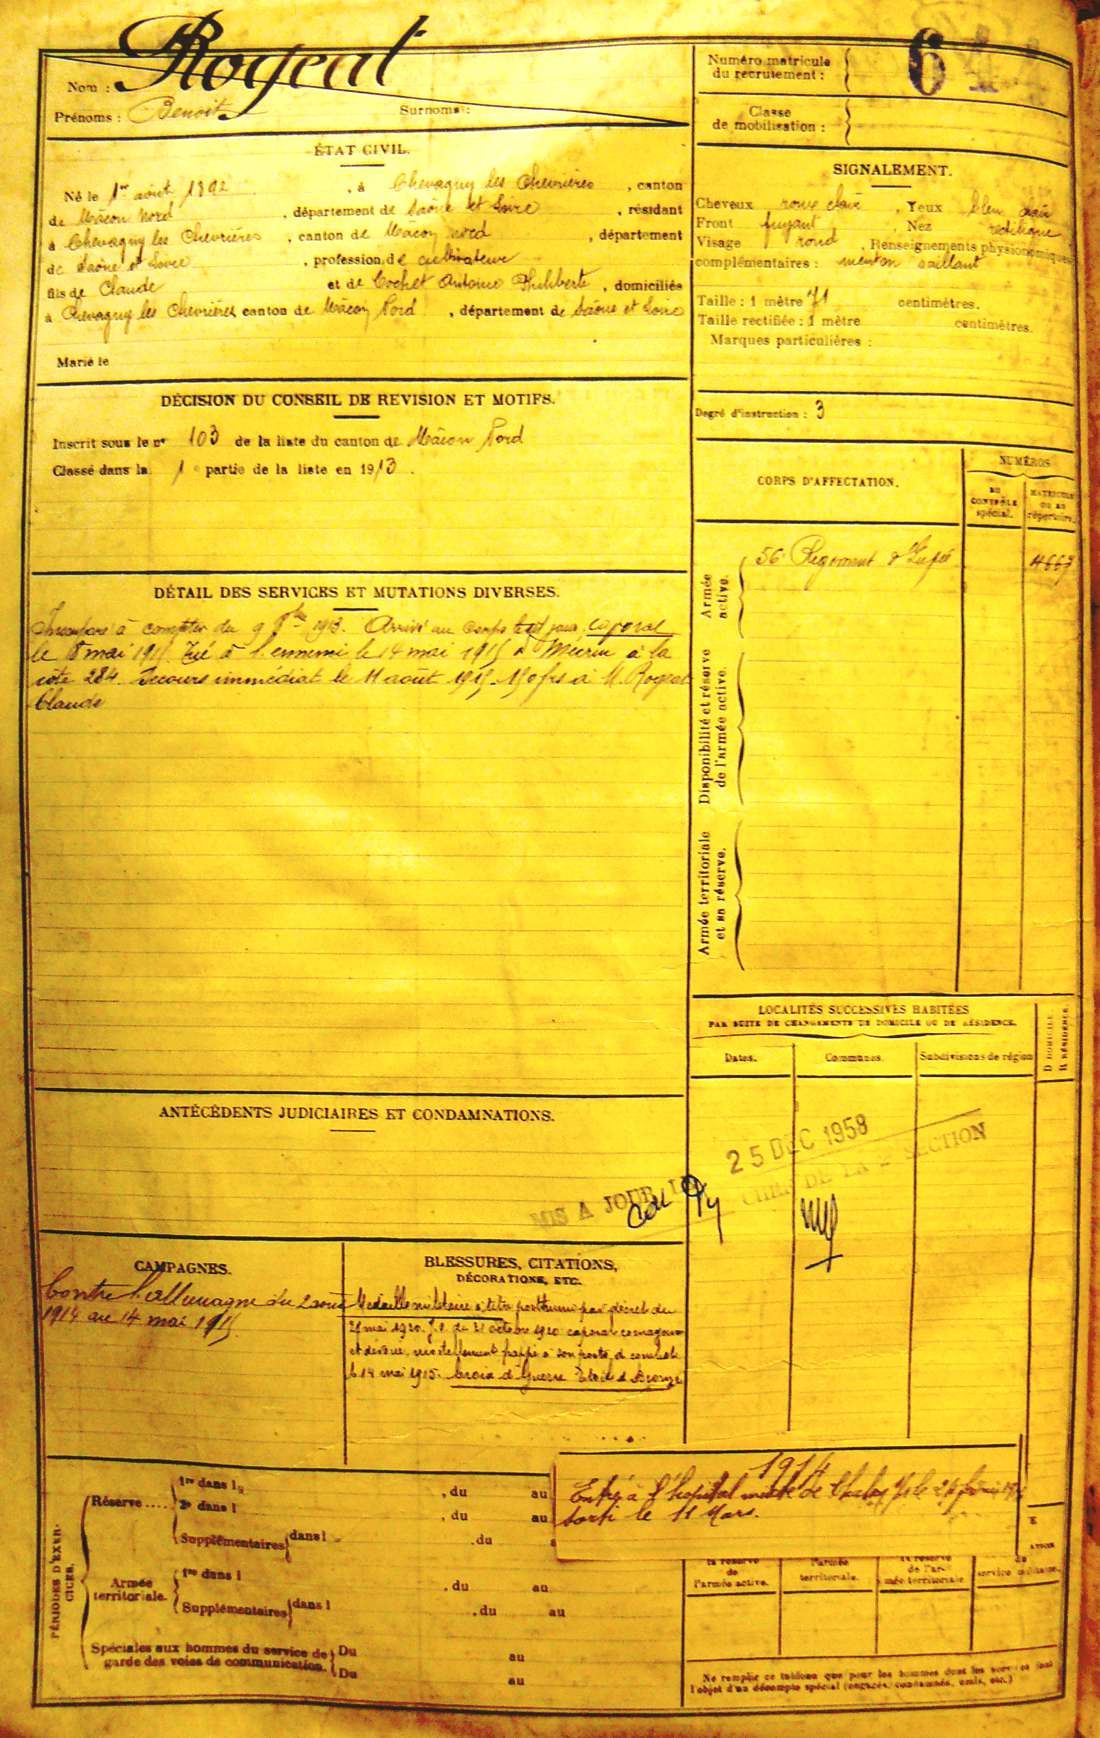 Nom : Rogeat
Prénoms : Benoit Surnoms :
Numéro matricule
du recrutement :
Classe
de mobilisation :
ÉTAT CIVIL.
Né le 1er août 1892, à Chevagny les Chevrières, canton
de Mâcon Nord, département de Saône et Loire, résidant
à Chevagny les Chevrières, canton de Mâcon Nord, département
de Saône et Loire, profession de cultivateur
fils de Claude et de Cochet Antoine Philiberte, domiciliés
à Chevagny les Chevrières canton de Mâcon Nord, département de Saône et Loire
Marié le
SIGNALEMENT.
Cheveux roux clair, Yeux bleu clair
Front fuyant, Nez rectiligne
Visage rond, Renseignements physionomiques
complémentaires : menton saillant
Taille : 1 mètre 71 centimètres.
Taille rectifiée : 1 mètre centimètres.
Marques particulières :
Degré d'instruction : 3
DÉCISION DU CONSEIL DE REVISION ET MOTIFS.
Inscrit sous le no 103 de la liste du canton de Mâcon Nord
Classé dans la 1e partie de la liste en 1913.
CORPS D'AFFECTATION.
NUMÉROS
DU
CONTRÔLE
spécial.
MATRICULE
OU AU
répertoire.
Armée
active.
56e Régiment d'Infrie
4667
Disponibilité et réserve
de l'armée active.
Armée territoriale
et sa réserve.
DÉTAIL DES SERVICES ET MUTATIONS DIVERSES.
Incorporé à compter du 9 8bre 1913. Arrivé au corps le dit jour. caporal
le 8 mai 1915. Tué à l'ennemi le 14 mai 1915 à à la
côte 284. Secours immédiat le 11 août 1915. 150 frs à M. Rogeat
Claude
LOCALITÉS SUCCESSIVES HABITÉES
PAR SUITE DE CHANGEMENTS DE DOMICILE OU DE RÉSIDENCE.
Dates. Communes. Subdivisions de région
D DOMICILE
R RÉSIDENCE
ANTÉCÉDENTS JUDICIAIRES ET CONDAMNATIONS.
MIS A JOUR LE 25 DEC 1958
CHEF DE LA 2e SECTION
CAMPAGNES.
Contre l'allemagne du 2 août
1914 au 14 mai 1915
BLESSURES, CITATIONS,
DÉCORATIONS, ETC.
Médaille militaire à titre posthume par décret du
mai 1920. J.O. du 21 octobre 1920 caporal courageux
et dévoué, mortellement frappé à son poste de combat
le 14 mai 1915. Croix de Guerre Etoile de Bronze
1914
Entré à l'hopital mixte de le 24 février
Sorti le 11 Mars.
PÉRIODES D'EXERCICES.
Réserve
1re dans l , du au
2e dans l , du au
Supplémentaires dans l . du
Armée
territoriale.
1re dans l . du au
Supplémentaires dans l . du au
Spéciales aux hommes du service de
garde des voies de communication.
Du au
Du au
la réserve
de
l'armée active.
l'armée
territoriale.
la réserve
de l'ar-
mée territoriale
du
service militaire.
Ne remplir ce tableau que pour les hommes dont les services font
l'objet d'un décompte spécial (engagés, condamnés, omis, etc.)